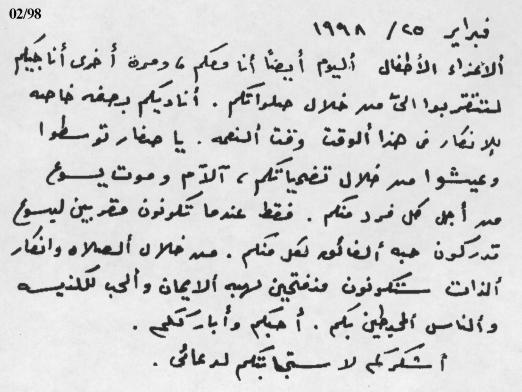 02/98
فبراير ٢٥/ ١٩٩٨
ألاعزاء الأطفال أليوم أيضاً أنا معكم، ومرة أخرى أناجيكم
لتتقربوا الىّ من خلال صلواتكم. أناديكم بصفه خاصه
للإنكار فى هذا ألوقت وقت ألنعمه. يا صغار توسطوا
وعيشوا من خلال تضحياتكم، آلآم وموت يسوع
من أجل كل فرد منكم. فقط عندما تكونون مقربين ليسوع
تدركون حبه ألفائق لكل منكم. من خلال ألصلاه وانكار
ألذات ستكونون منفتحين لهبه ألايمان وألحب للكنيسه
وألناس ألمحيطين بكم. أحبكم وأبارككم.
أشكركم لاستجابتكم لدعائى.